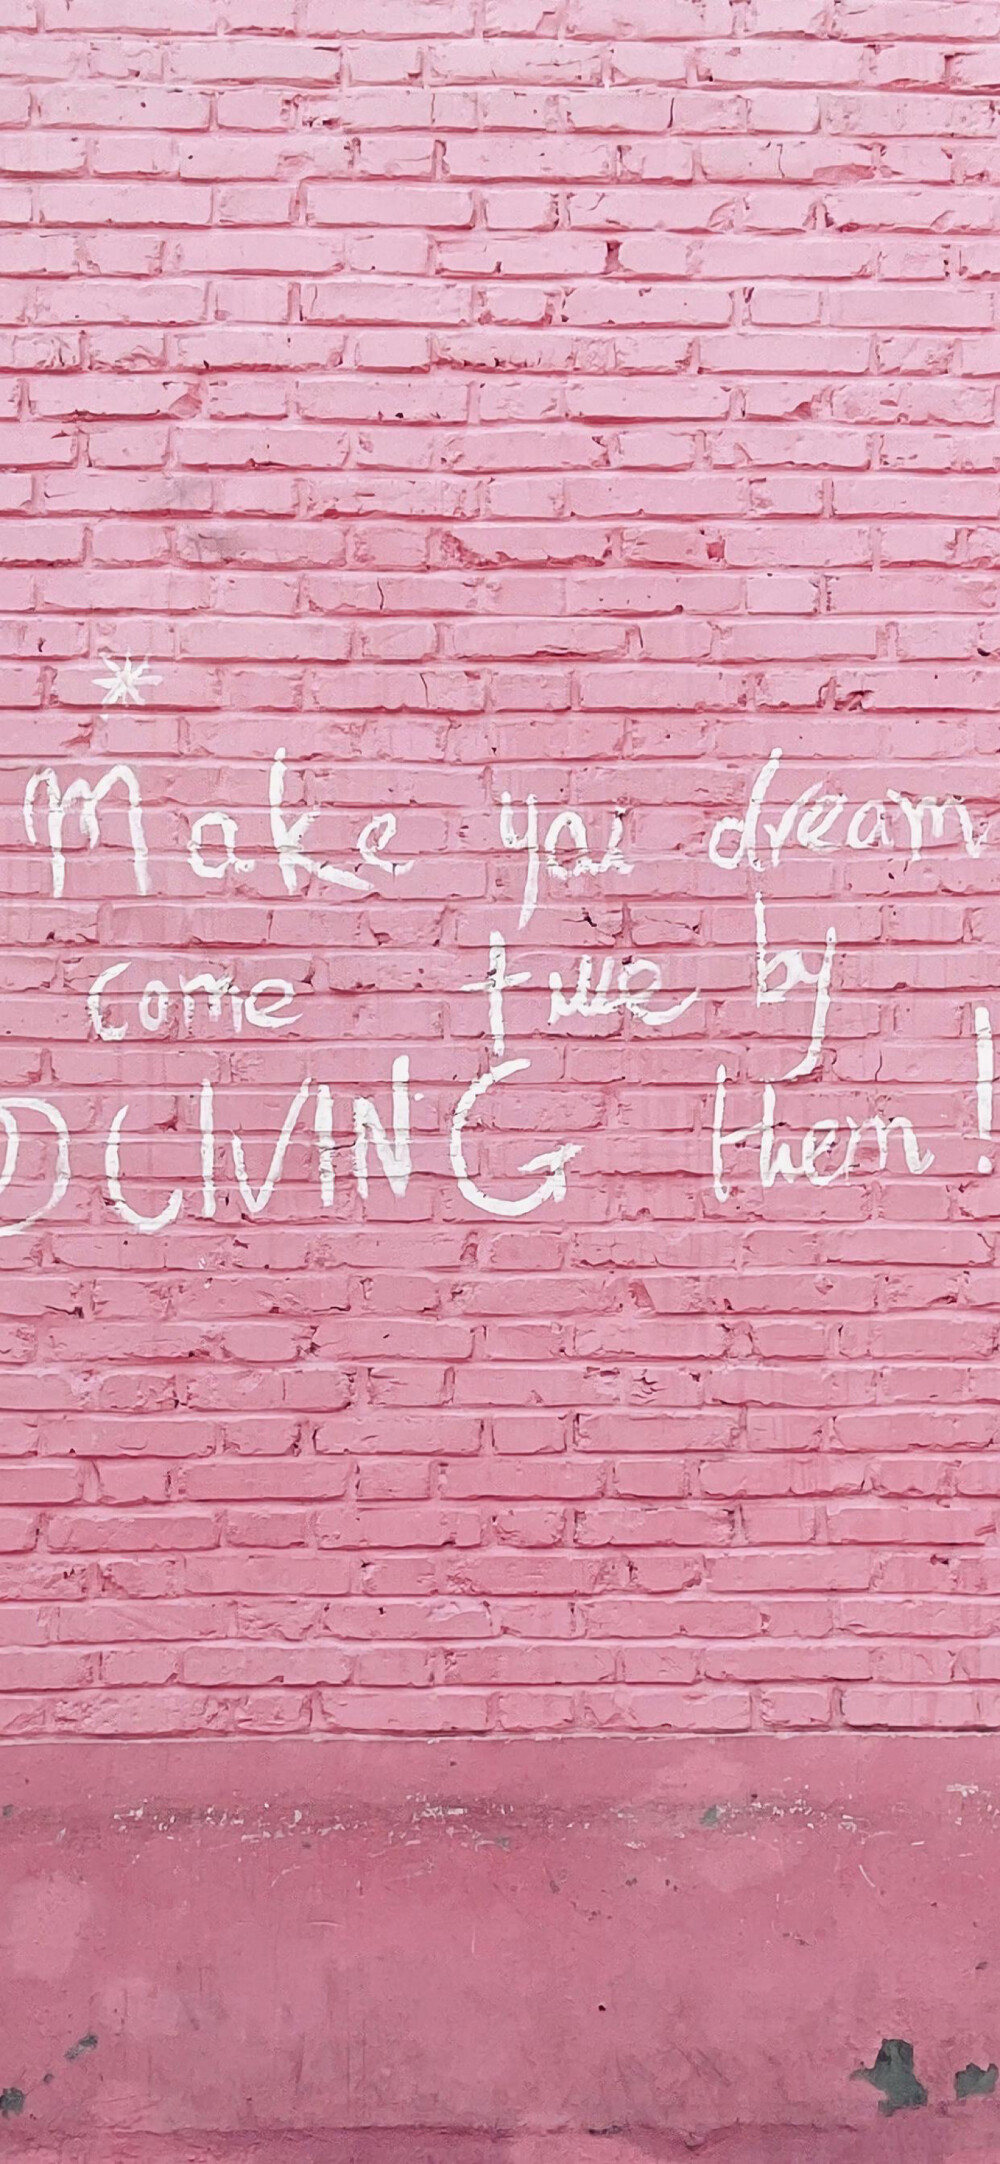 Make you dream
come true by
DLIVING them!